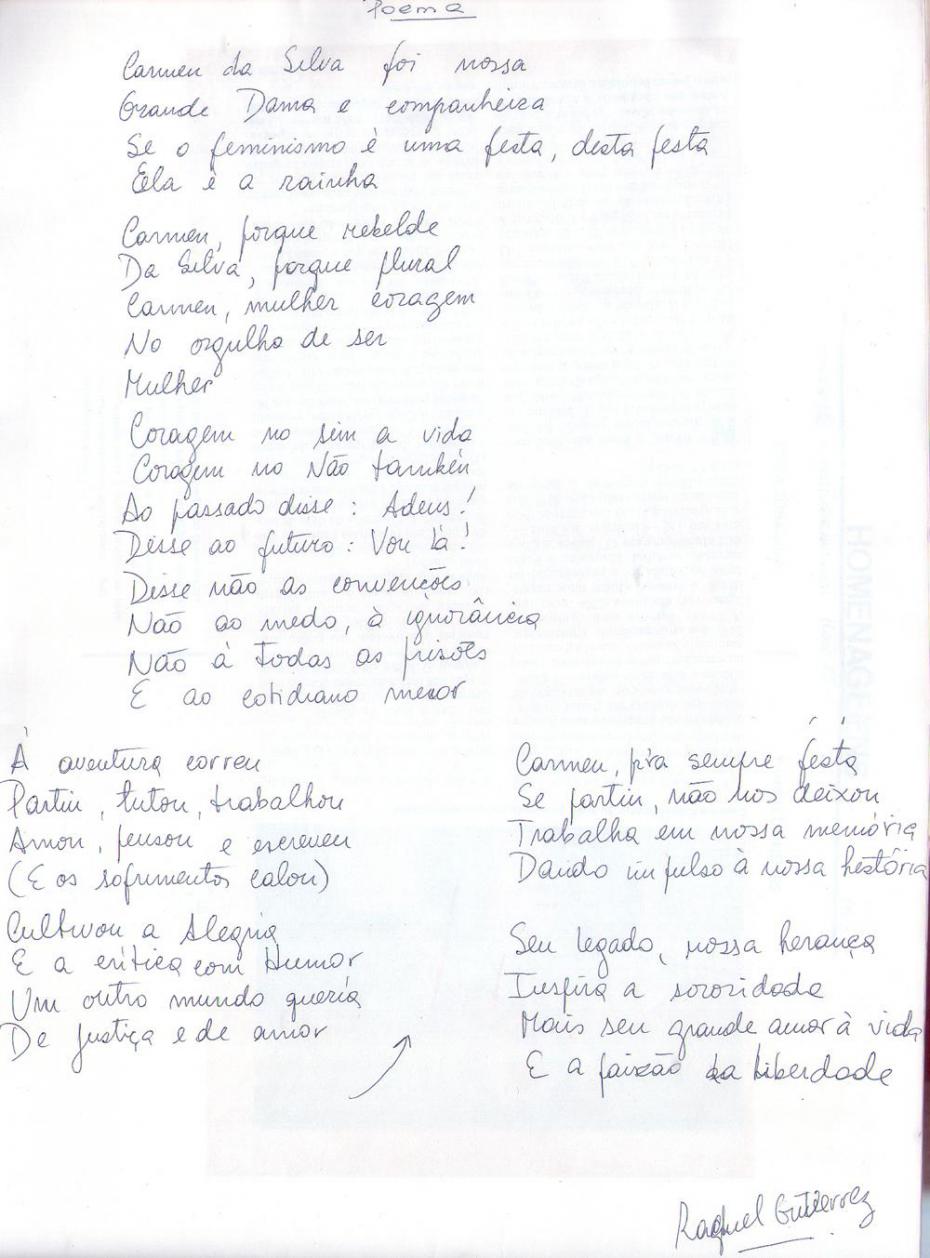 Poema
Carmen da Silva foi nossa
Grande Dama e companheira
Se o feminismo é uma festa, desta festa
Ela é a rainha
Carmen, porque rebelde
Da Silva, porque plural
Carmen, mulher coragem
No orgulho de ser
Mulher
Coragem no sim a vida
Coragem no Não também
Ao passado disse: Adeus!
Disse ao futuro: Vou lá!
Disse não as convenções
Não ao medo, à ignorância
Não à todas as prisões
E ao cotidiano menor
À aventura correu
Partiu, lutou, trabalhou
Amou, pensou e escreveu
(E os sofrimentos calou)
Cultivou a Alegria
E a crítica com Humor
Um outro mundo queria
De Justiça e de amor
Carmen, pra sempre festa
Se partiu, não nos deixou
Trabalha em nossa memória
Dando impulso à nossa história
Seu legado, nossa herança
Inspira a sororidade
Mais seu grande amor à vida
E a paixão da liberdade
Raquel Gutiérrez
HOMENAGE